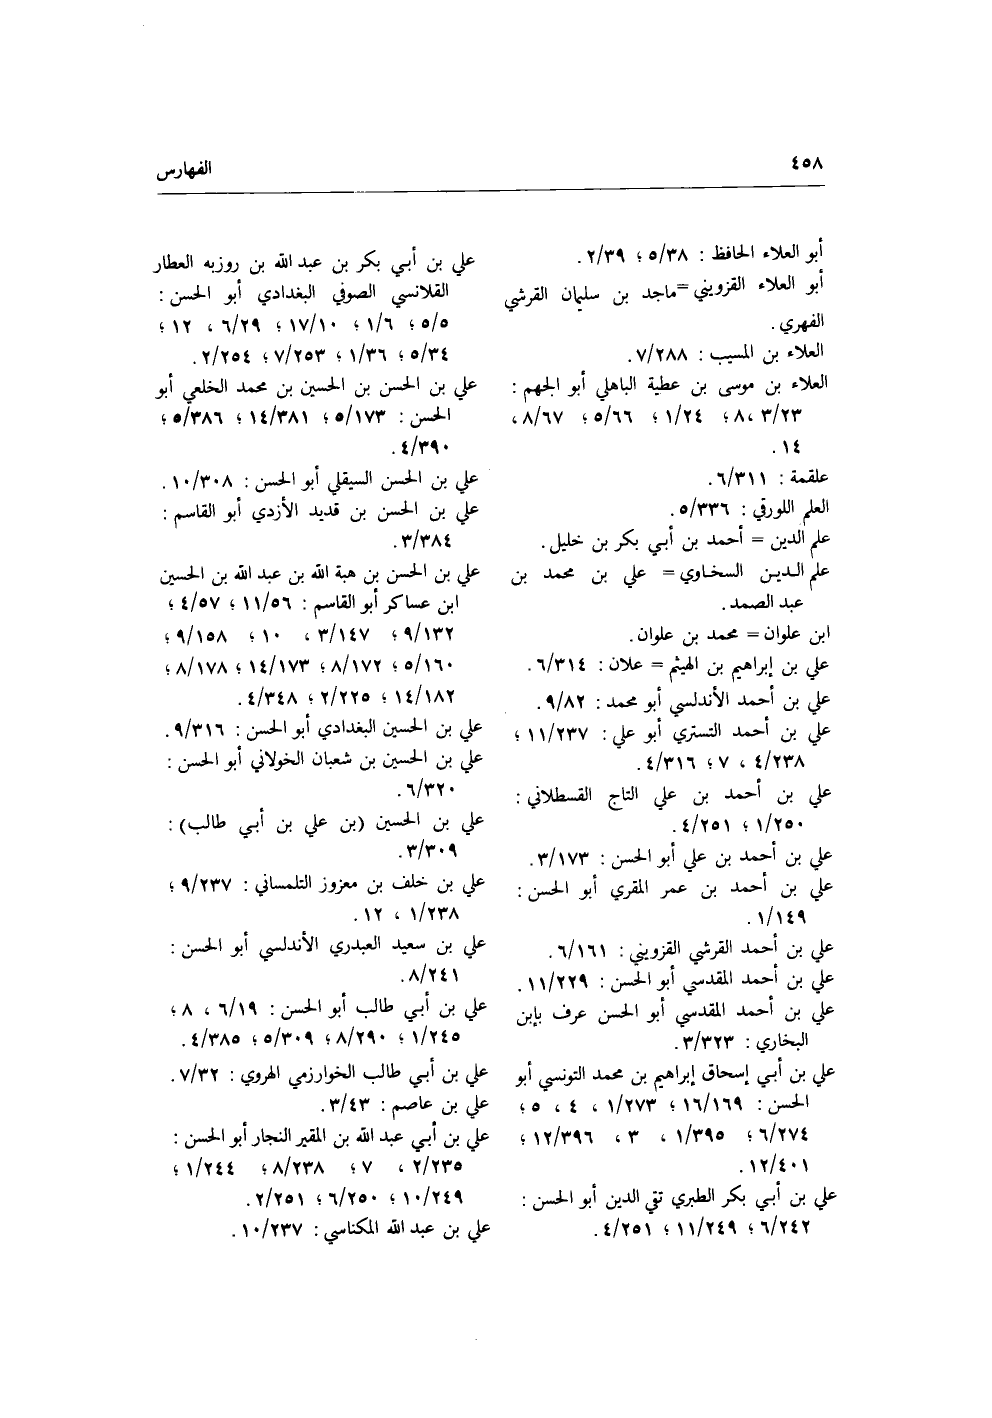 ٤٥٨
الفهارس
أبو العلاء الحافظ : ٥/٣٨ ؛ ٢/٣٩ .
أبو العلاء القزويني = ماجد بن سليمان القرشي
الفهري .
العلاء بن المسيب : ٧/٢٨٨ .
العلاء بن موسى بن عطية الباهلي أبو الجهم :
٣/٢٣ ، ٨ ؛ ١/٢٤ ؛ ٥/٦٦ ؛ ٨/٦٧ ،
١٤ .
علقمة : ٦/٣١١ .
العلم اللورقي : ٥/٣٣٦ .
علم الدين = أحمد بن أبي بكر بن خليل .
علم الدين السخاوي = علي بن محمد بن
عبد الصمد .
ابن علوان = محمد بن علوان .
علي بن إبراهيم بن الهيثم = علان : ٦/٣١٤ .
علي بن أحمد الأندلسي أبو محمد : ٩/٨٢ .
علي بن أحمد التستري أبو علي : ١١/٢٣٧ ؛
٤/٢٣٨ ، ٧ ؛ ٤/٣١٦ .
علي بن أحمد بن علي التاج القسطلاني :
١/٢٥٠ ؛ ٤/٢٥١ .
علي بن أحمد بن علي أبو الحسن : ٣/١٧٣ .
علي بن أحمد بن عمر المقري أبو الحسن :
١/١٤٩ .
علي بن أحمد القرشي القزويني : ٦/١٦١ .
علي بن أحمد المقدسي أبو الحسن : ١١/٢٢٩ .
علي بن أحمد المقدسي أبو الحسن عرف بإبن
البخاري : ٣/٣٢٣ .
علي بن أبي إسحاق إبراهيم بن محمد التونسي أبو
الحسن : ١٦/١٦٩ ؛ ١/٢٧٣ ، ٤ ، ٥ ؛
٦/٢٧٤ ؛ ١/٣٩٥ ، ٣ ، ١٢/٣٩٦ ؛
١٢/٤٠١ .
علي بن أبي بكر الطبري تقي الدين أبو الحسن :
٦/٢٤٢ ؛ ١١/٢٤٩ ؛ ٤/٢٥١ .
علي بن أبي بكر بن عبد الله بن روزبه العطار
القلانسي الصوفي البغدادي أبو الحسن :
٥/٥ ؛ ١/٦ ؛ ١٧/١٠ ؛ ٦/٢٩ ، ١٢ ؛
٥/٣٤ ؛ ١/٣٦ ؛ ٧/٢٥٣ ؛ ٢/٢٥٤ .
علي بن الحسن بن الحسين بن محمد الخلعي أبو
الحسن : ٥/١٧٣ ؛ ١٤/٣٨١ ؛ ٥/٣٨٦ ؛
٤/٣٩٠ .
علي بن الحسن السيقلي أبو الحسن : ١٠/٣٠٨ .
علي بن الحسن بن قديد الأزدي أبو القاسم :
٣/٣٨٤ .
علي بن الحسن بن هبة الله بن عبد الله بن الحسين
ابن عساكر أبو القاسم : ١١/٥٦ ؛ ٤/٥٧ ؛
٩/١٣٢ ؛ ٣/١٤٧ ، ١٠ ؛ ٩/١٥٨ ؛
٥/١٦٠ ؛ ٨/١٧٢ ؛ ١٤/١٧٣ ؛ ٨/١٧٨ ؛
١٤/١٨٢ ؛ ٢/٢٢٥ ؛ ٤/٣٤٨ .
علي بن الحسين البغدادي أبو الحسن : ٩/٣١٦ .
علي بن الحسين بن شعبان الخولاني أبو الحسن :
٦/٣٢٠ .
علي بن الحسين (بن علي بن أبي طالب) :
٣/٣٠٩ .
علي بن خلف بن معزوز التلمساني : ٩/٢٣٧ ؛
١/٢٣٨ ، ١٢ .
علي بن سعيد العبدري الأندلسي أبو الحسن :
٨/٢٤١ .
علي بن أبي طالب أبو الحسن : ٦/١٩ ، ٨ ؛
١/٢٤٥ ؛ ٨/٢٩٠ ؛ ٥/٣٠٩ ؛ ٤/٣٨٥ .
علي بن أبي طالب الخوارزمي الهروي : ٧/٣٢ .
علي بن عاصم : ٣/٤٣ .
علي بن أبي عبد الله بن المقير النجار أبو الحسن :
٢/٢٣٥ ، ٧ ؛ ٨/٢٣٨ ؛ ١/٢٤٤ ؛
١٠/٢٤٩ ؛ ٦/٢٥٠ ؛ ٢/٢٥١ .
علي بن عبد الله المكناسي : ١٠/٢٣٧ .